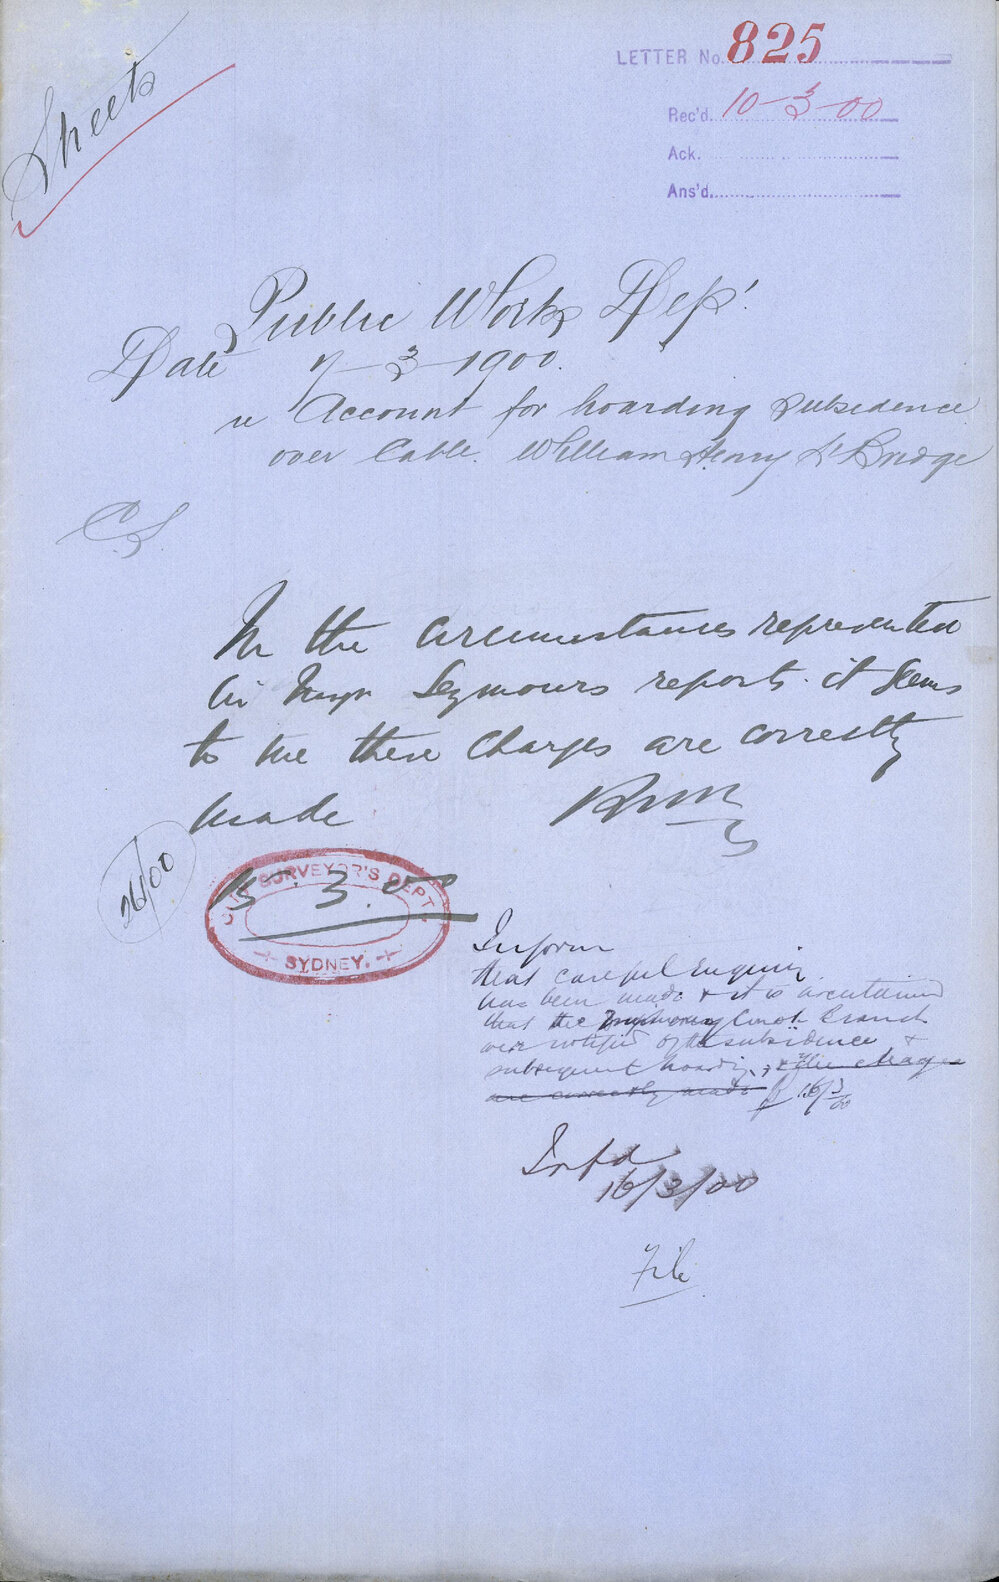 Sheets
LETTER No. 825
Rec'd. 10-3-00
Ack.
Ans'd.
Public Works Dept
Date 7-3-1900.
re Account for hoarding subsidence
over Cable. William Henry St Bridge
CS
In the circumstances represented
in Insp. Seymours report. it seems
to me these charges are correctly
made
26/00
15.3.00
CITY SURVEYOR'S DEPT.
SYDNEY.
Inform
that careful Enquiry
has been made & it is ascertained
that the Branch
were notified of the subsidence &
subsequent hoarding, & the charges
are correctly made 16/3/00
Infd
16/3/00
File